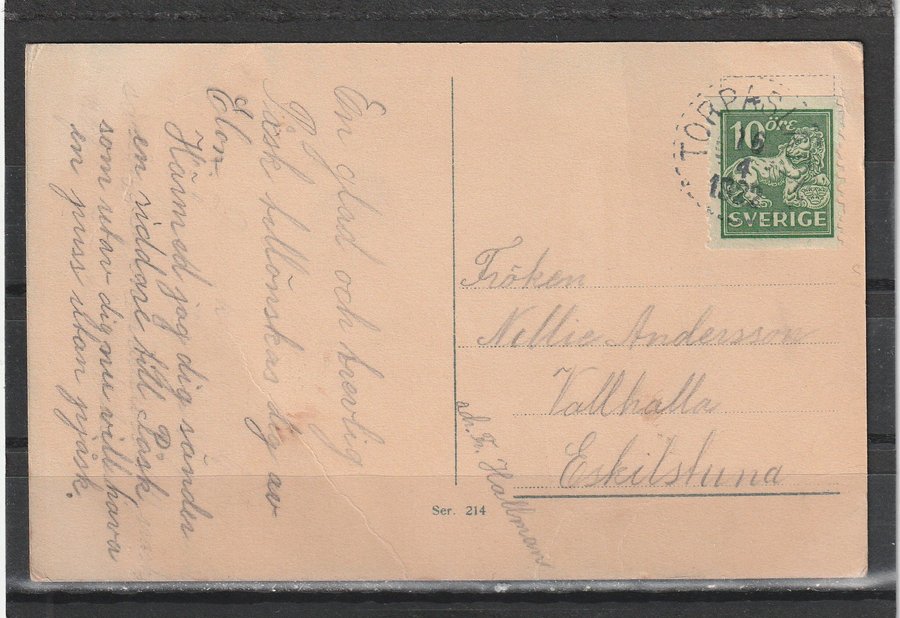 En glad och trevlig
Påsk tillönskas dig av
Elon.
Härmed jag dig sänder
en riddare till Påsk
som utav dig nu vill hava
en puss utan pjåsk.
TORPÅS
16
4
10 öre
SVERIGE
Fröken
Nellie Andersson
Vallhalla
Eskilstuna
adr. Fr. Hallman
Ser. 214